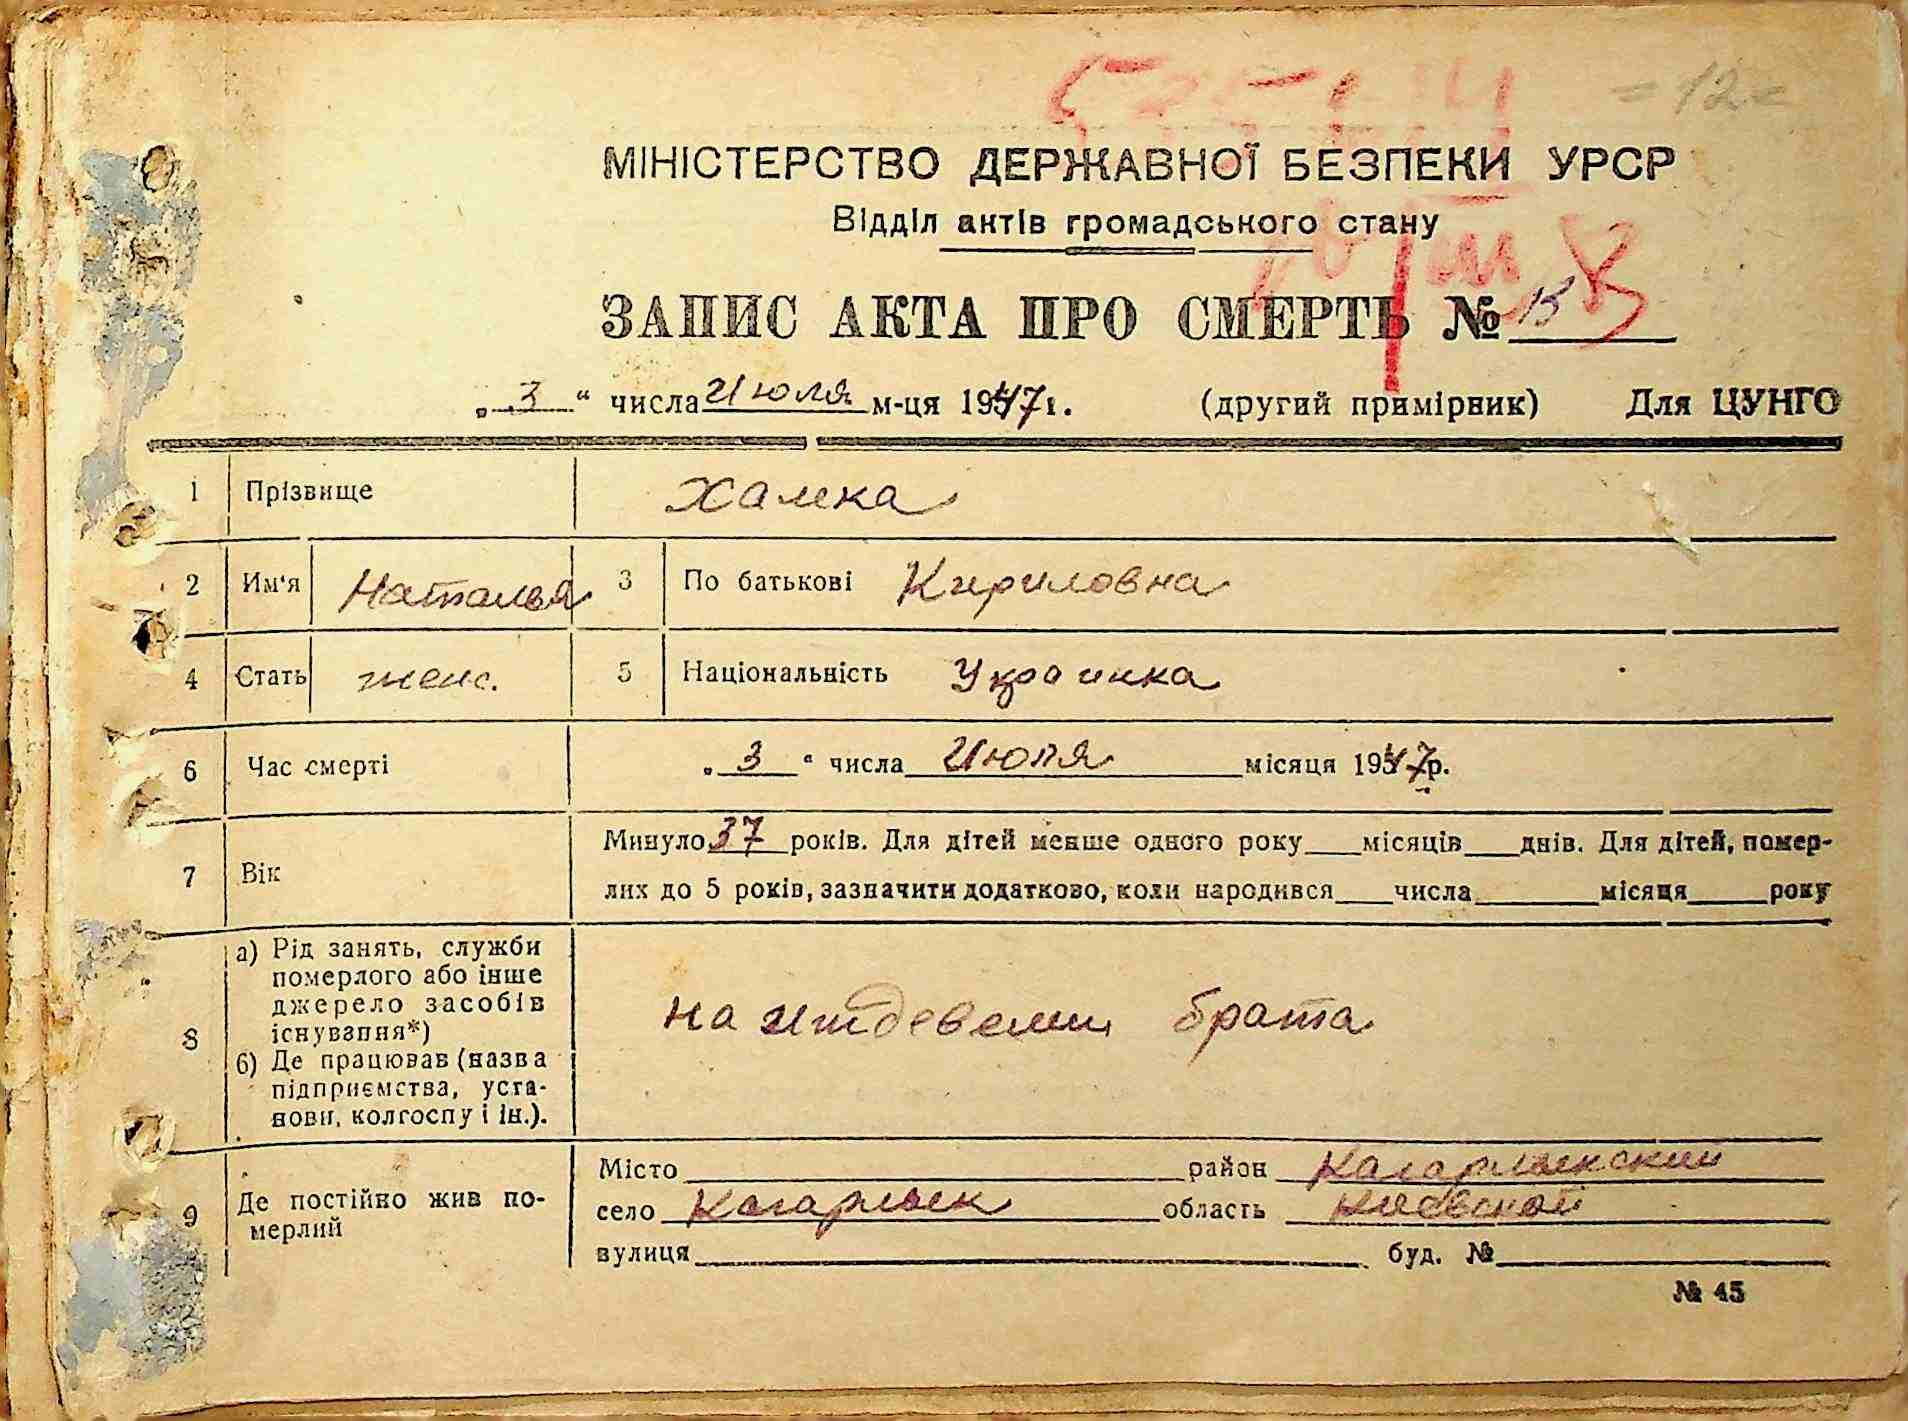 = 12 =
МІНІСТЕРСТВО ДЕРЖАВНОЇ БЕЗПЕКИ УРСР
Відділ актів громадського стану
ЗАПИС АКТА ПРО СМЕРТЬ № 15
„ 3 “ числа Июля м-ця 1947 г. (другий примірник) Для ЦУНГО
1 Прізвище Халека
2 Им'я Наталья 3 По батькові Кириловна
4 Стать женс. 5 Національність Украинка
6 Час смерті „ 3 “ числа Июля місяця 1947 р.
7 Вік Минуло 37 років. Для дітей менше одного року ___ місяців ___ днів. Для дітей, помер-
лих до 5 років, зазначити додатково, коли народився ___ числа ___ місяця ___ року
8 а) Рід занять, служби
померлого або інше
джерело засобів
існування*)
б) Де працював (назва
підприємства, уста-
нови, колгоспу і ін.).
на иждевении брата
9 Де постійно жив по-
мерлий
Місто ___ район Кагарлыкский
село Кагарлык область Киевской
вулиця ___ буд. № ___
№ 45